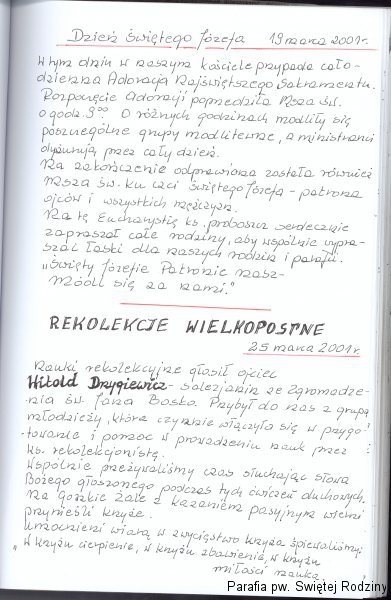 Dzień Świętego Józefa 19 marca 2001r.
W tym dniu w naszym kościele przypada cało-
dzienna Adoracja Najświętszego Sakramentu.
Rozpoczęcie Adoracji poprzedziła Msza Św.
o godz. 9⁰⁰. O różnych godzinach modliły się
poszczególne grupy modlitewne, a ministranci
dyżurują przez cały dzień.
Na zakończenie odprawiona została również
Msza Św. ku czci Świętego Józefa - patrona
ojców i wszystkich mężczyzn.
Na tę Eucharystię ks. proboszcz serdecznie
zapraszał całe rodziny, aby wspólnie wypra-
szać łaski dla naszych rodzin i parafii.
„Święty Józefie Patronie nasz-
Módl się za nami."
REKOLEKCJE WIELKOPOSTNE
25 marca 2001r.
Nauki rekolekcyjne głosił ojciec
Witold Drygiewicz - salezjanin ze Zgromadze-
nia św. Jana Bosko. Przybył do nas z grupą
młodzieży, która czynnie włączyła się w przygo-
towanie i pomoc w prowadzeniu nauk przez
ks. rekolekcjonistę.
Wspólnie przeżywaliśmy czas słuchając słowa
Bożego głoszonego podczas tych ćwiczeń duchowych.
Na Gorzkie Żale z kazaniem pasyjnym wierni
przynieśli krzyże.
Umocnieni wiarą w zwycięstwo krzyża śpiewaliśmy:
„W krzyżu cierpienie, w krzyżu zbawienie, w krzyżu
miłości nauka
Parafia pw. Świętej Rodziny